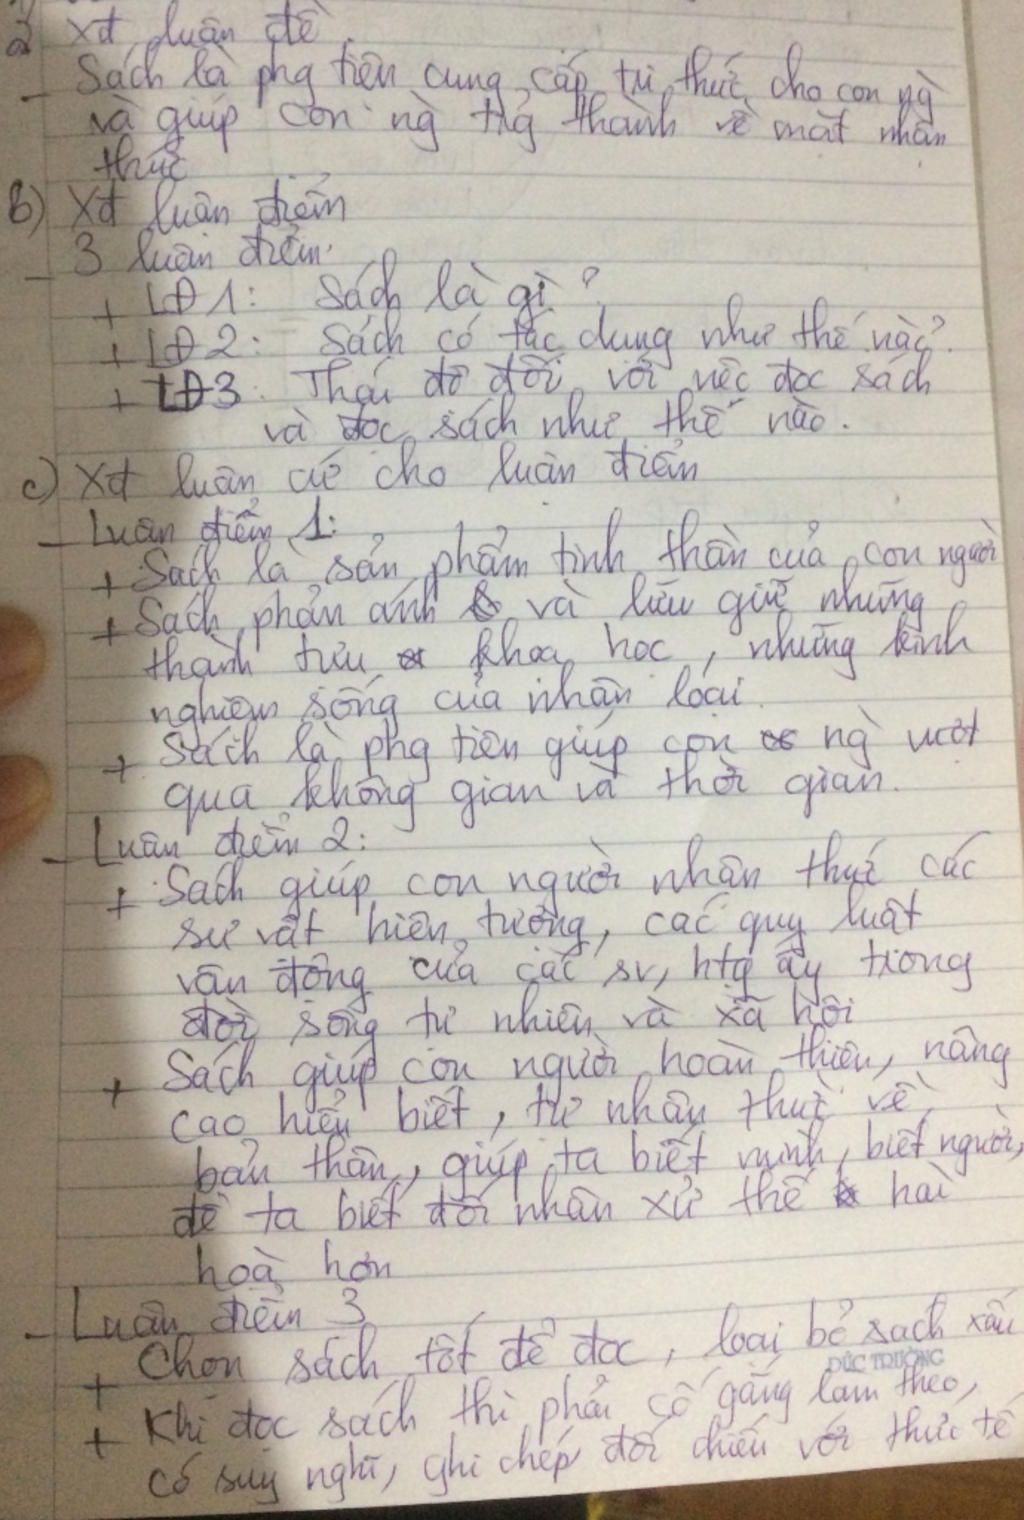 a xđ luận đề.
- Sách là phg tiện cung cấp tri thức cho con ng`
và giúp con ng` trg thành về mặt nhận
thức
b) Xđ luận điểm
- 3 luận điểm:
+ LĐ1: Sách là gì?
+ LĐ2: Sách có tác dụng như thế nào?
+ LĐ3: Thái độ đối với việc đọc sách
và đọc sách như thế nào.
c) Xđ luận cứ cho luận điểm
- Luận điểm 1:
+ Sách là sản phẩm tinh thần của con người
+ Sách phản ánh và lưu giữ những
thành tựu khoa học, những kinh
nghiệm sống của nhân loại.
+ Sách là phg tiện giúp con ng` vượt
qua không gian và thời gian.
- Luận điểm 2:
+ Sách giúp con người nhận thức các
sự vật hiện tượng, các quy luật
vận động của các sv, htg ấy trong
đời sống tự nhiên và xã hội
+ Sách giúp con người hoàn thiện, nâng
cao hiểu biết, tự nhận thức về
bản thân, giúp ta biết mình, biết người,
để ta biết đối nhân xử thế hài
hoà hơn
- Luận điểm 3
+ Chọn sách tốt để đọc, loại bỏ sách xấu
ĐỨC TRƯỜNG
+ Khi đọc sách thì phải cố gắng làm theo,
có suy nghĩ, ghi chép đối chiếu với thực tế